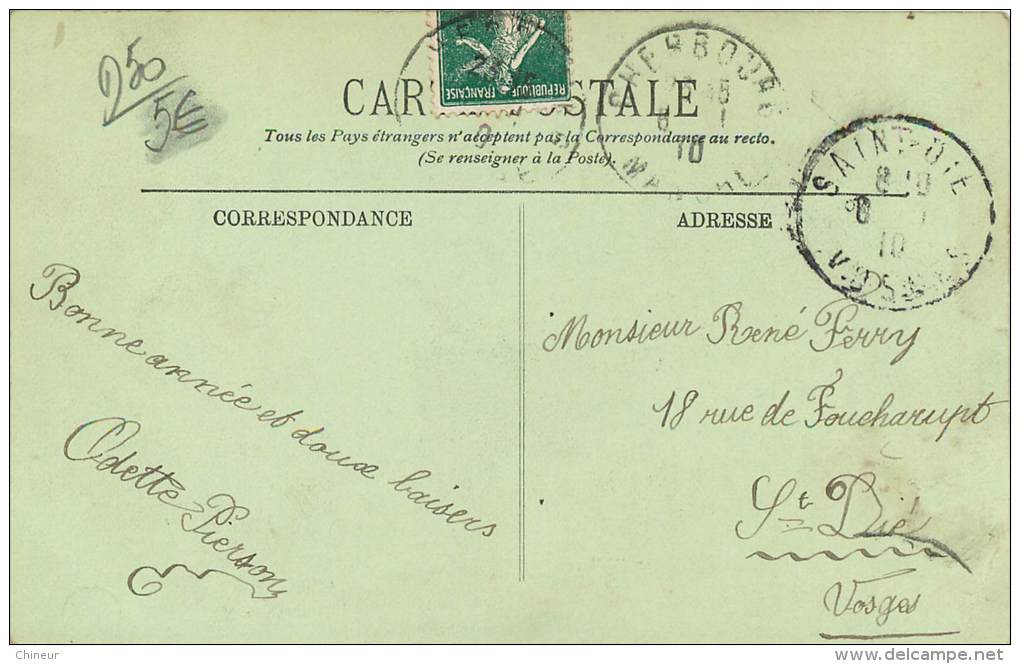 250
/5€
REPUBLIQUE FRANÇAISE
CARTE POSTALE
CHERBOURG
10
MANCHE
Tous les Pays étrangers n'acceptent pas la Correspondance au recto.
(Se renseigner à la Poste).
SAINT-DIE
10
VOSGES
CORRESPONDANCE
ADRESSE
Bonne année et doux baisers
Odette Pierson
Monsieur René Ferry
18 rue de Foucharupt
St Dié
Vosges
Chineur
www.delcampe.net